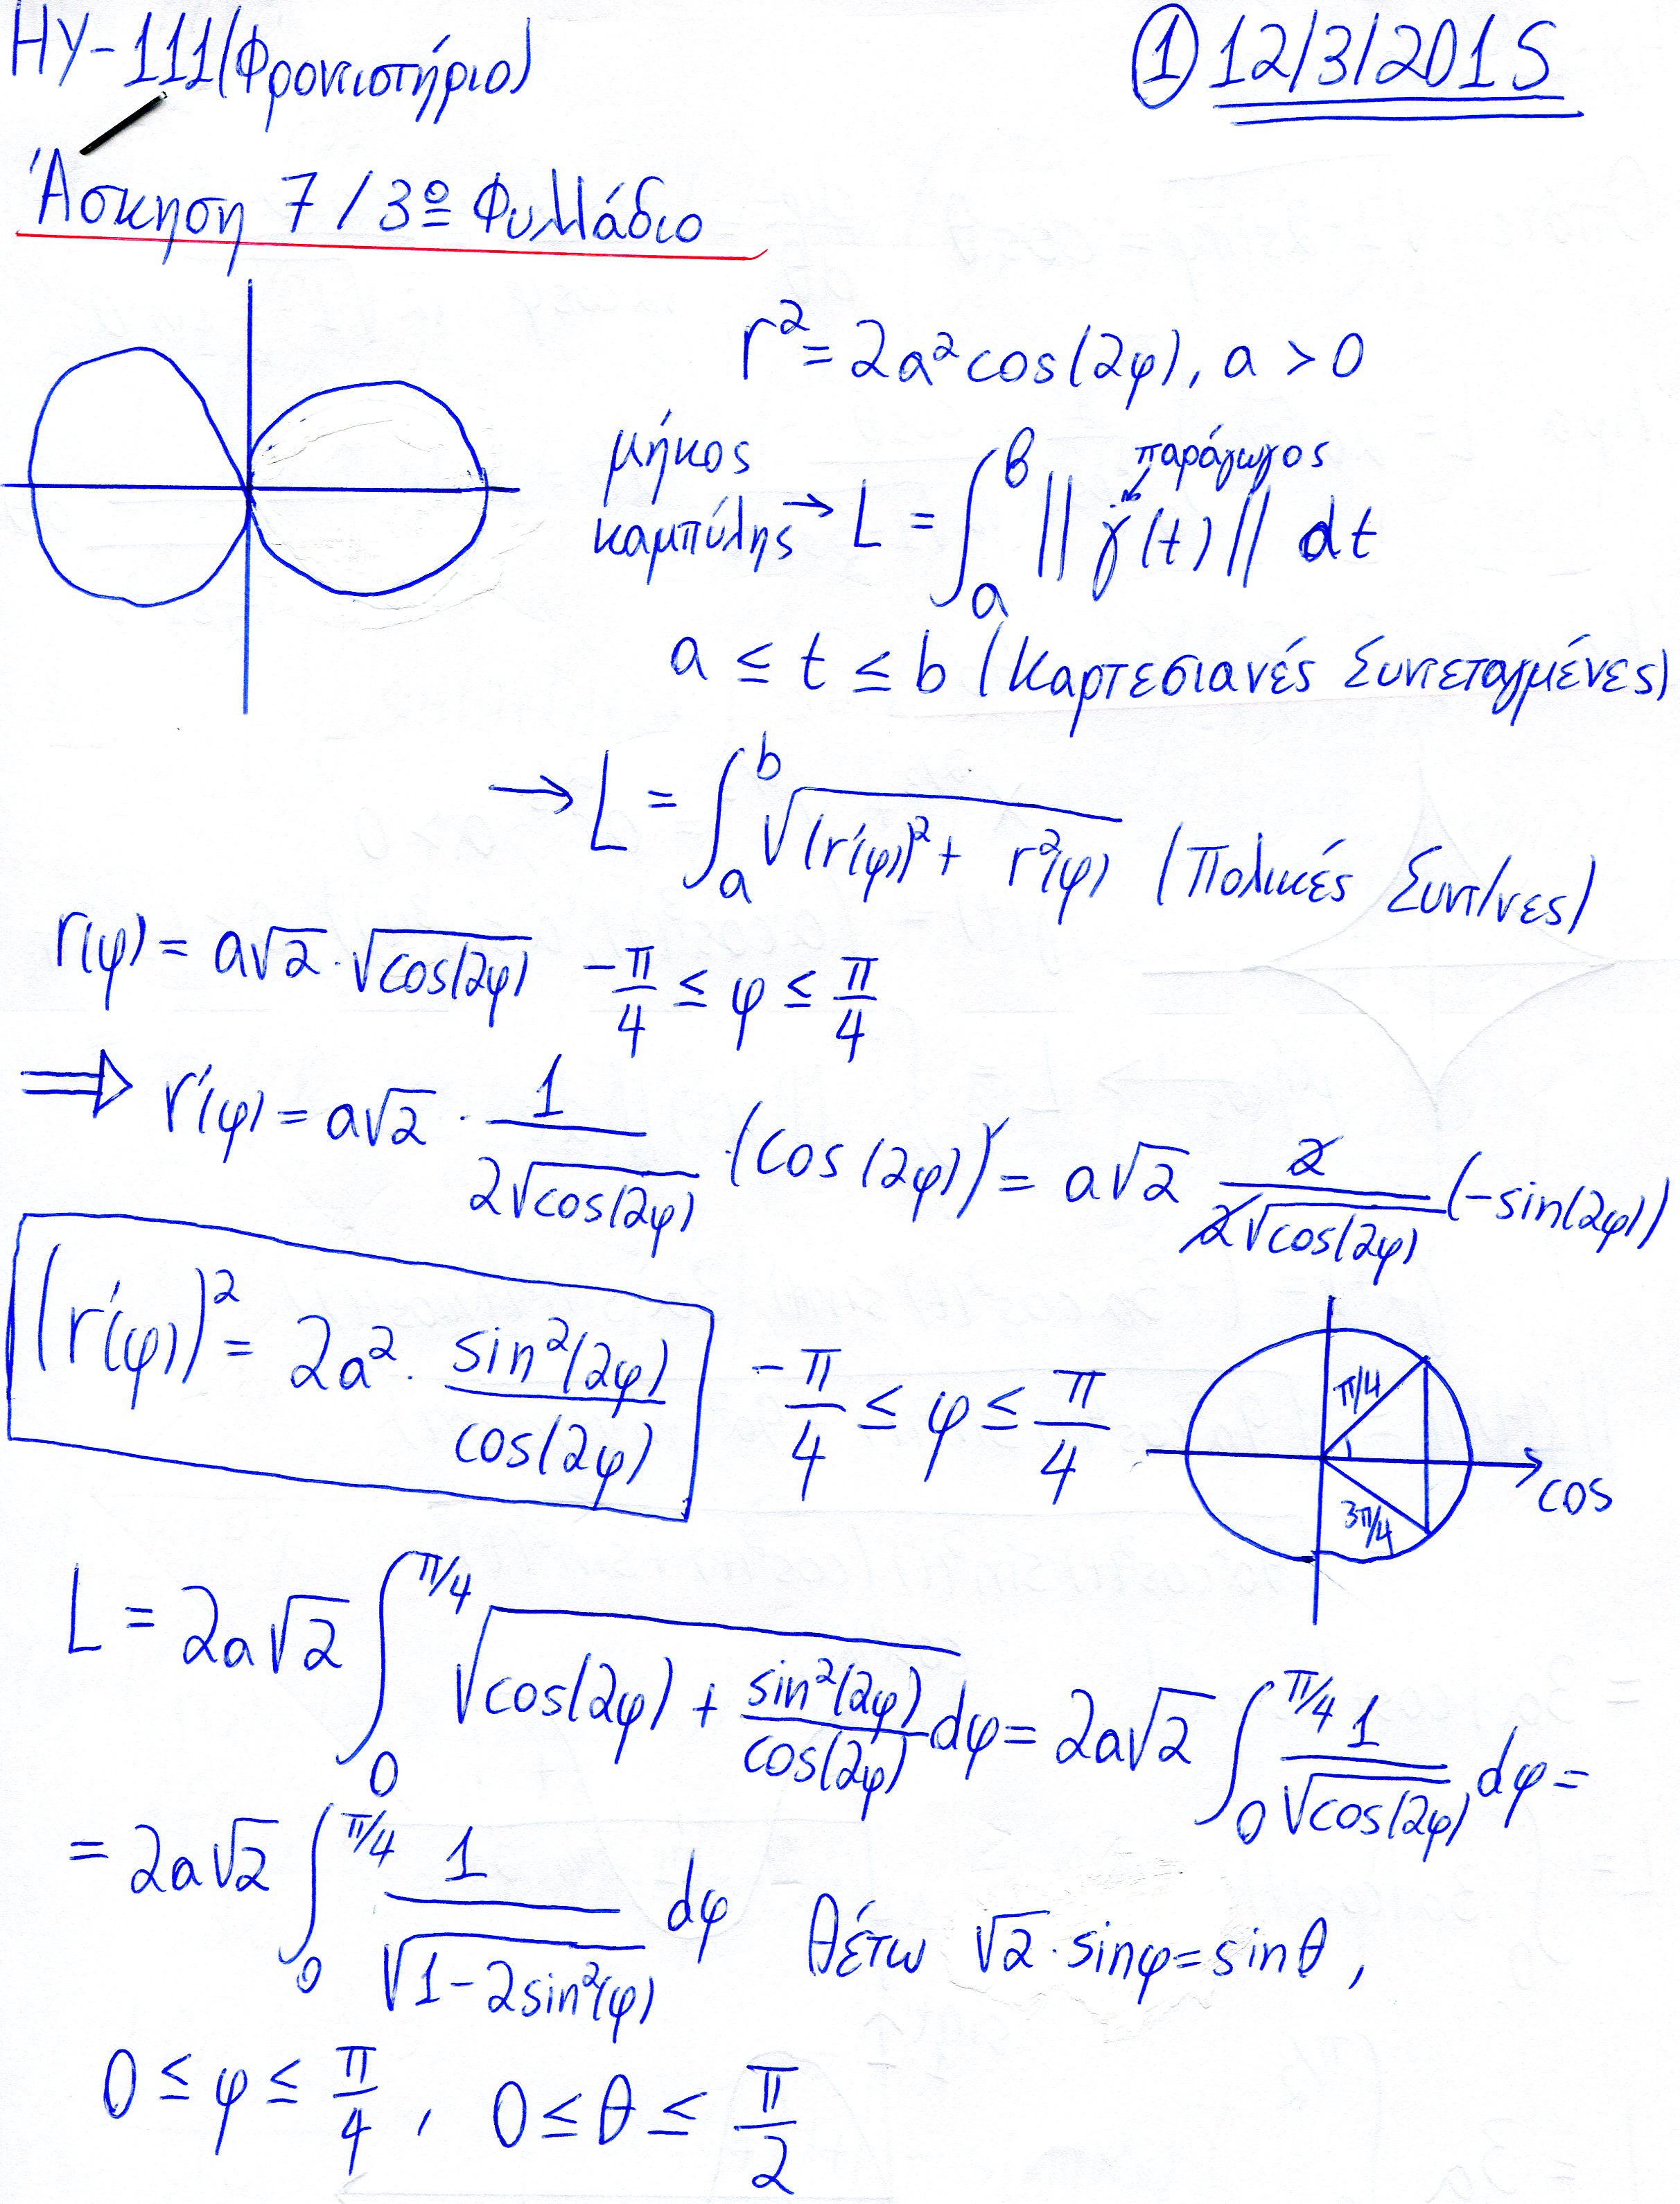 HY-111(Φροντιστήριο)
① 12/3/2015
Άσκηση 7 / 3º Φυλλάδιο
r² = 2a²cos(2φ), a > 0
μήκος
καμπύλης → L = ∫_a^b || γ̇(t) || dt
παράγωγος
a ≤ t ≤ b (Καρτεσιανές Συντεταγμένες)
→ L = ∫_a^b √((r'(φ))² + r²(φ)) (Πολικές Συντ/νες)
r(φ) = a√2 · √cos(2φ) -π/4 ≤ φ ≤ π/4
⇒ r'(φ) = a√2 · 1/(2√cos(2φ)) · (cos(2φ))' = a√2 2/(2√cos(2φ)) (-sin(2φ))
(r'(φ))² = 2a² · sin²(2φ)/cos(2φ) -π/4 ≤ φ ≤ π/4
π/4
cos
3π/4
L = 2a√2 ∫_0^{π/4} √(cos(2φ) + sin²(2φ)/cos(2φ)) dφ = 2a√2 ∫_0^{π/4} 1/√cos(2φ) dφ =
= 2a√2 ∫_0^{π/4} 1/√(1-2sin²(φ)) dφ θέτω √2 · sinφ = sinθ,
0 ≤ φ ≤ π/4, 0 ≤ θ ≤ π/2